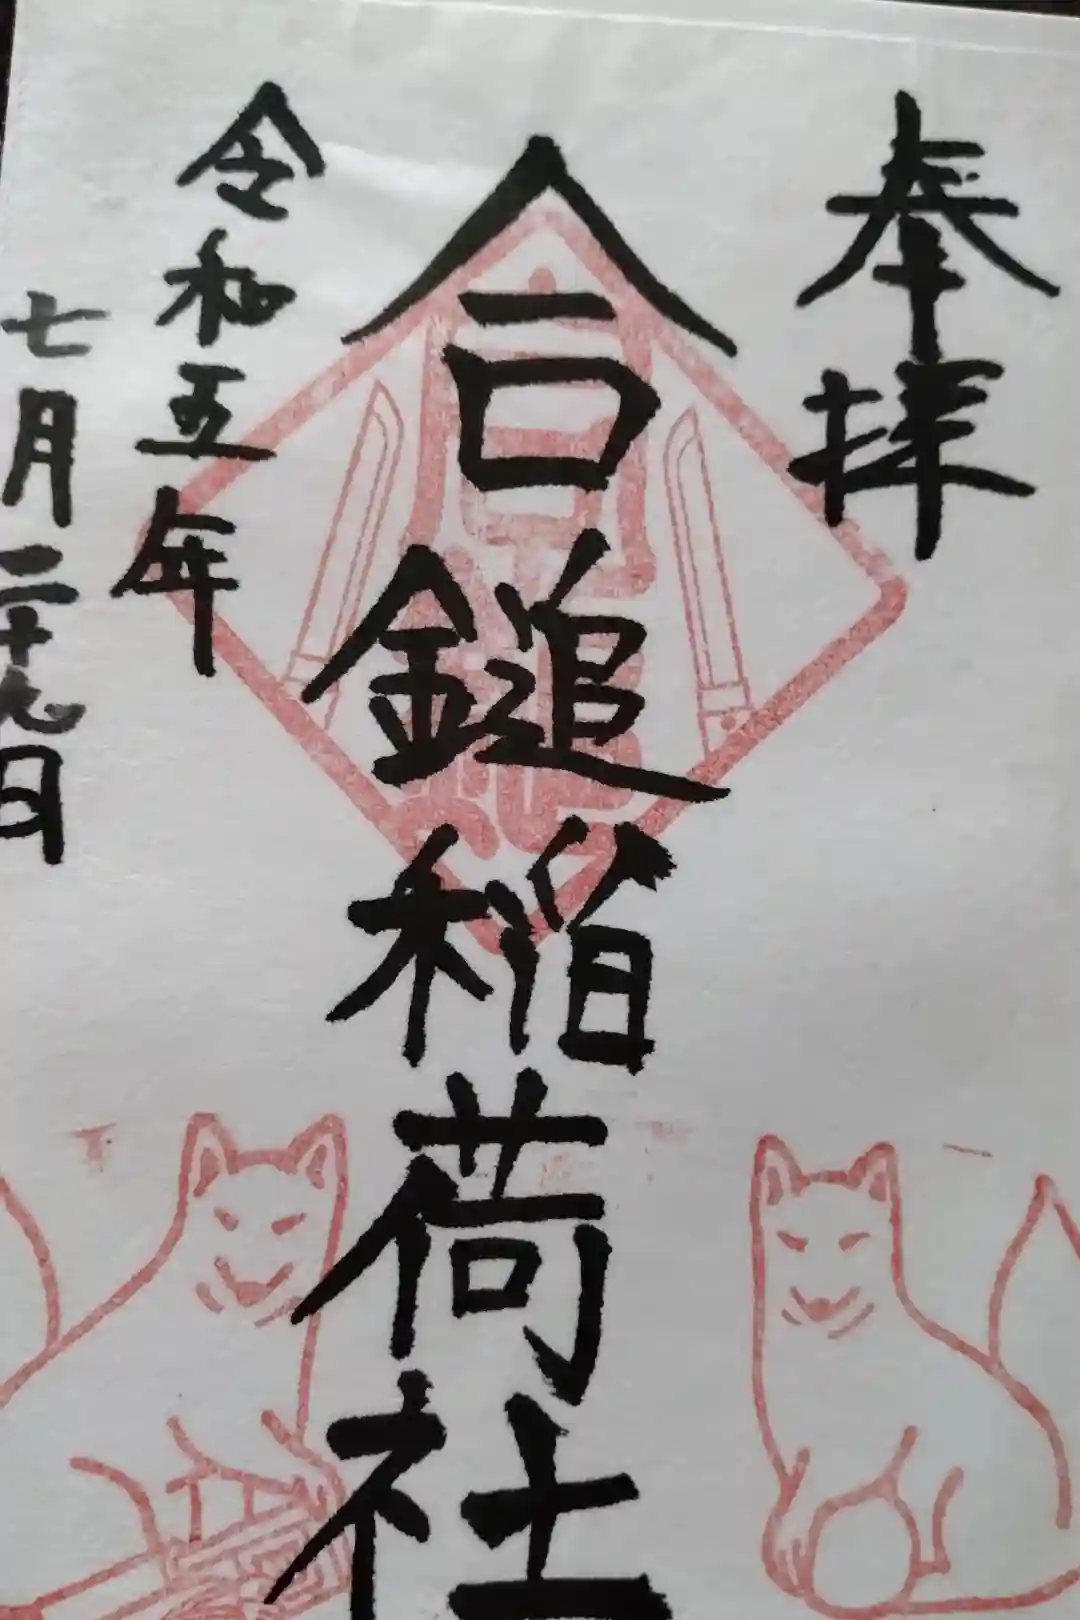 奉拝
合鎚稲荷社
令和五年
七月二十九日